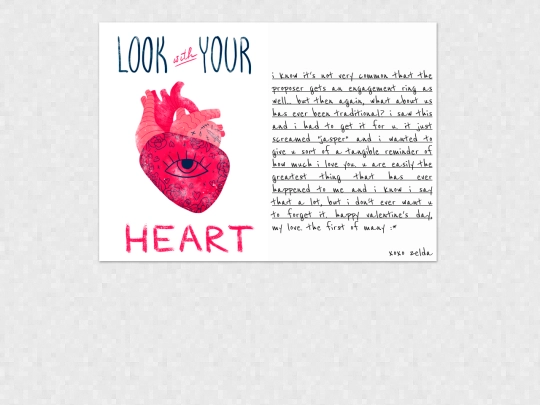 LOOK with YOUR
HEART
i know it's not very common that the
proposer gets an engagement ring as
well... but then again, what about us
has ever been traditional? i saw this
and i had to get it for u. it just
screamed "jasper" and i wanted to
give u sort of a tangible reminder of
how much i love you. u are easily the
greatest thing that has ever
happened to me and i know i say
that a lot, but i don't ever want u
to forget it. happy valentine's day,
my love. the first of many :*
xoxo zelda